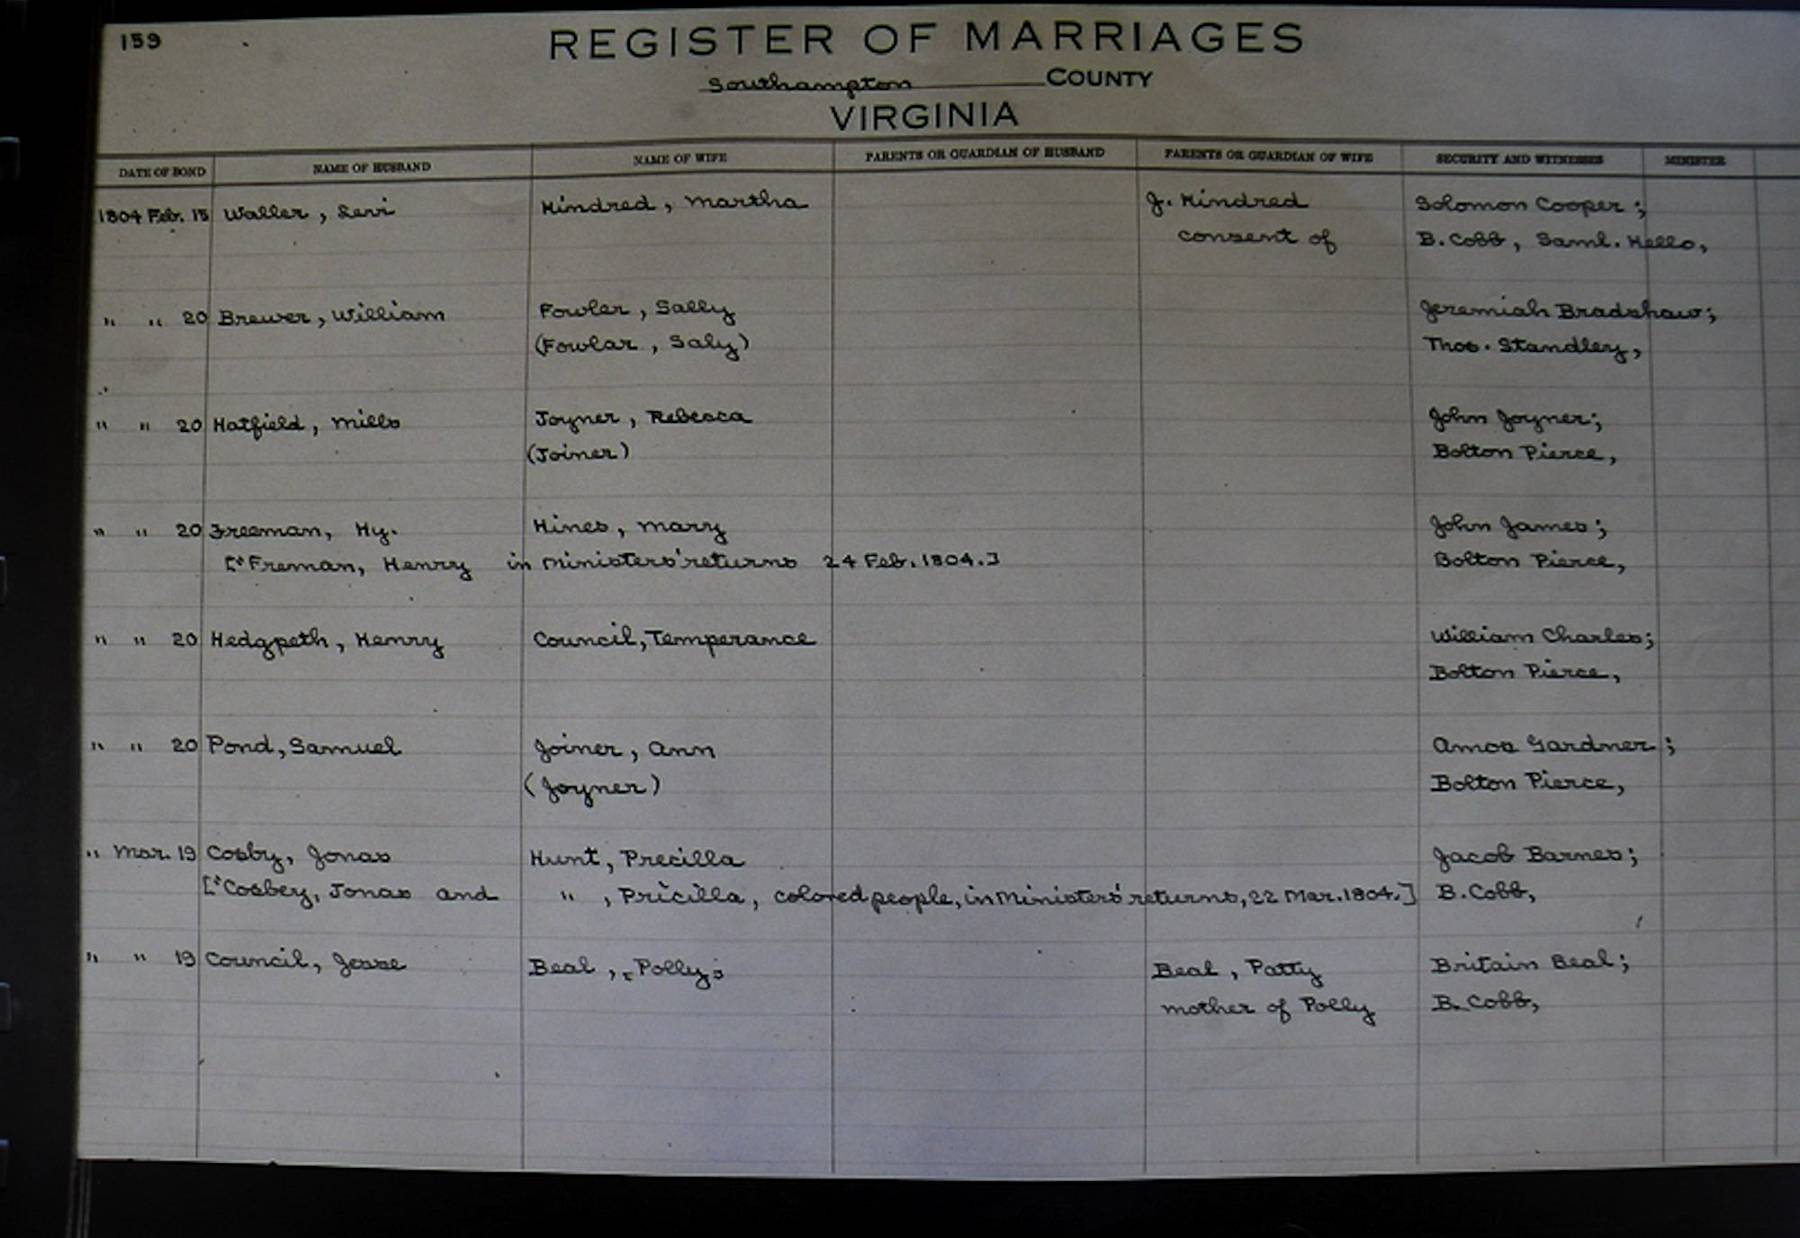 159
REGISTER OF MARRIAGES
Southampton COUNTY
VIRGINIA
DATE OF BOND NAME OF HUSBAND NAME OF WIFE PARENTS OR GUARDIAN OF HUSBAND PARENTS OR GUARDIAN OF WIFE SECURITY AND WITNESSES MINISTER
1804 Feb. 15 Waller, Levi Kindred, Martha J. Kindred Solomon Cooper;
consent of B. Cobb, Saml. Kello,
" " 20 Brewer, William Fowler, Sally Jeremiah Bradshaw;
(Fowlar, Saly) Thos. Standley,
" " 20 Hatfield, Mills Joyner, Rebecca John Joyner;
(Joiner) Bolton Pierce,
" " 20 Freeman, Hy. Hines, Mary John James;
["Freman, Henry in Ministers' returns 24 Feb. 1804.] Bolton Pierce,
" " 20 Hedgpeth, Henry Council, Temperance William Charles;
Bolton Pierce,
" " 20 Pond, Samuel Joiner, Ann Amos Gardner;
(Joyner) Bolton Pierce,
" Mar. 19 Cosby, Jonas Hunt, Precilla Jacob Barnes;
["Cosbey, Jonas and " , Pricilla, colored people, in Ministers' returns, 22 Mar. 1804.] B. Cobb,
" " 19 Council, Jesse Beal, [Polly] Beal, Patty Britain Beal;
mother of Polly B. Cobb,